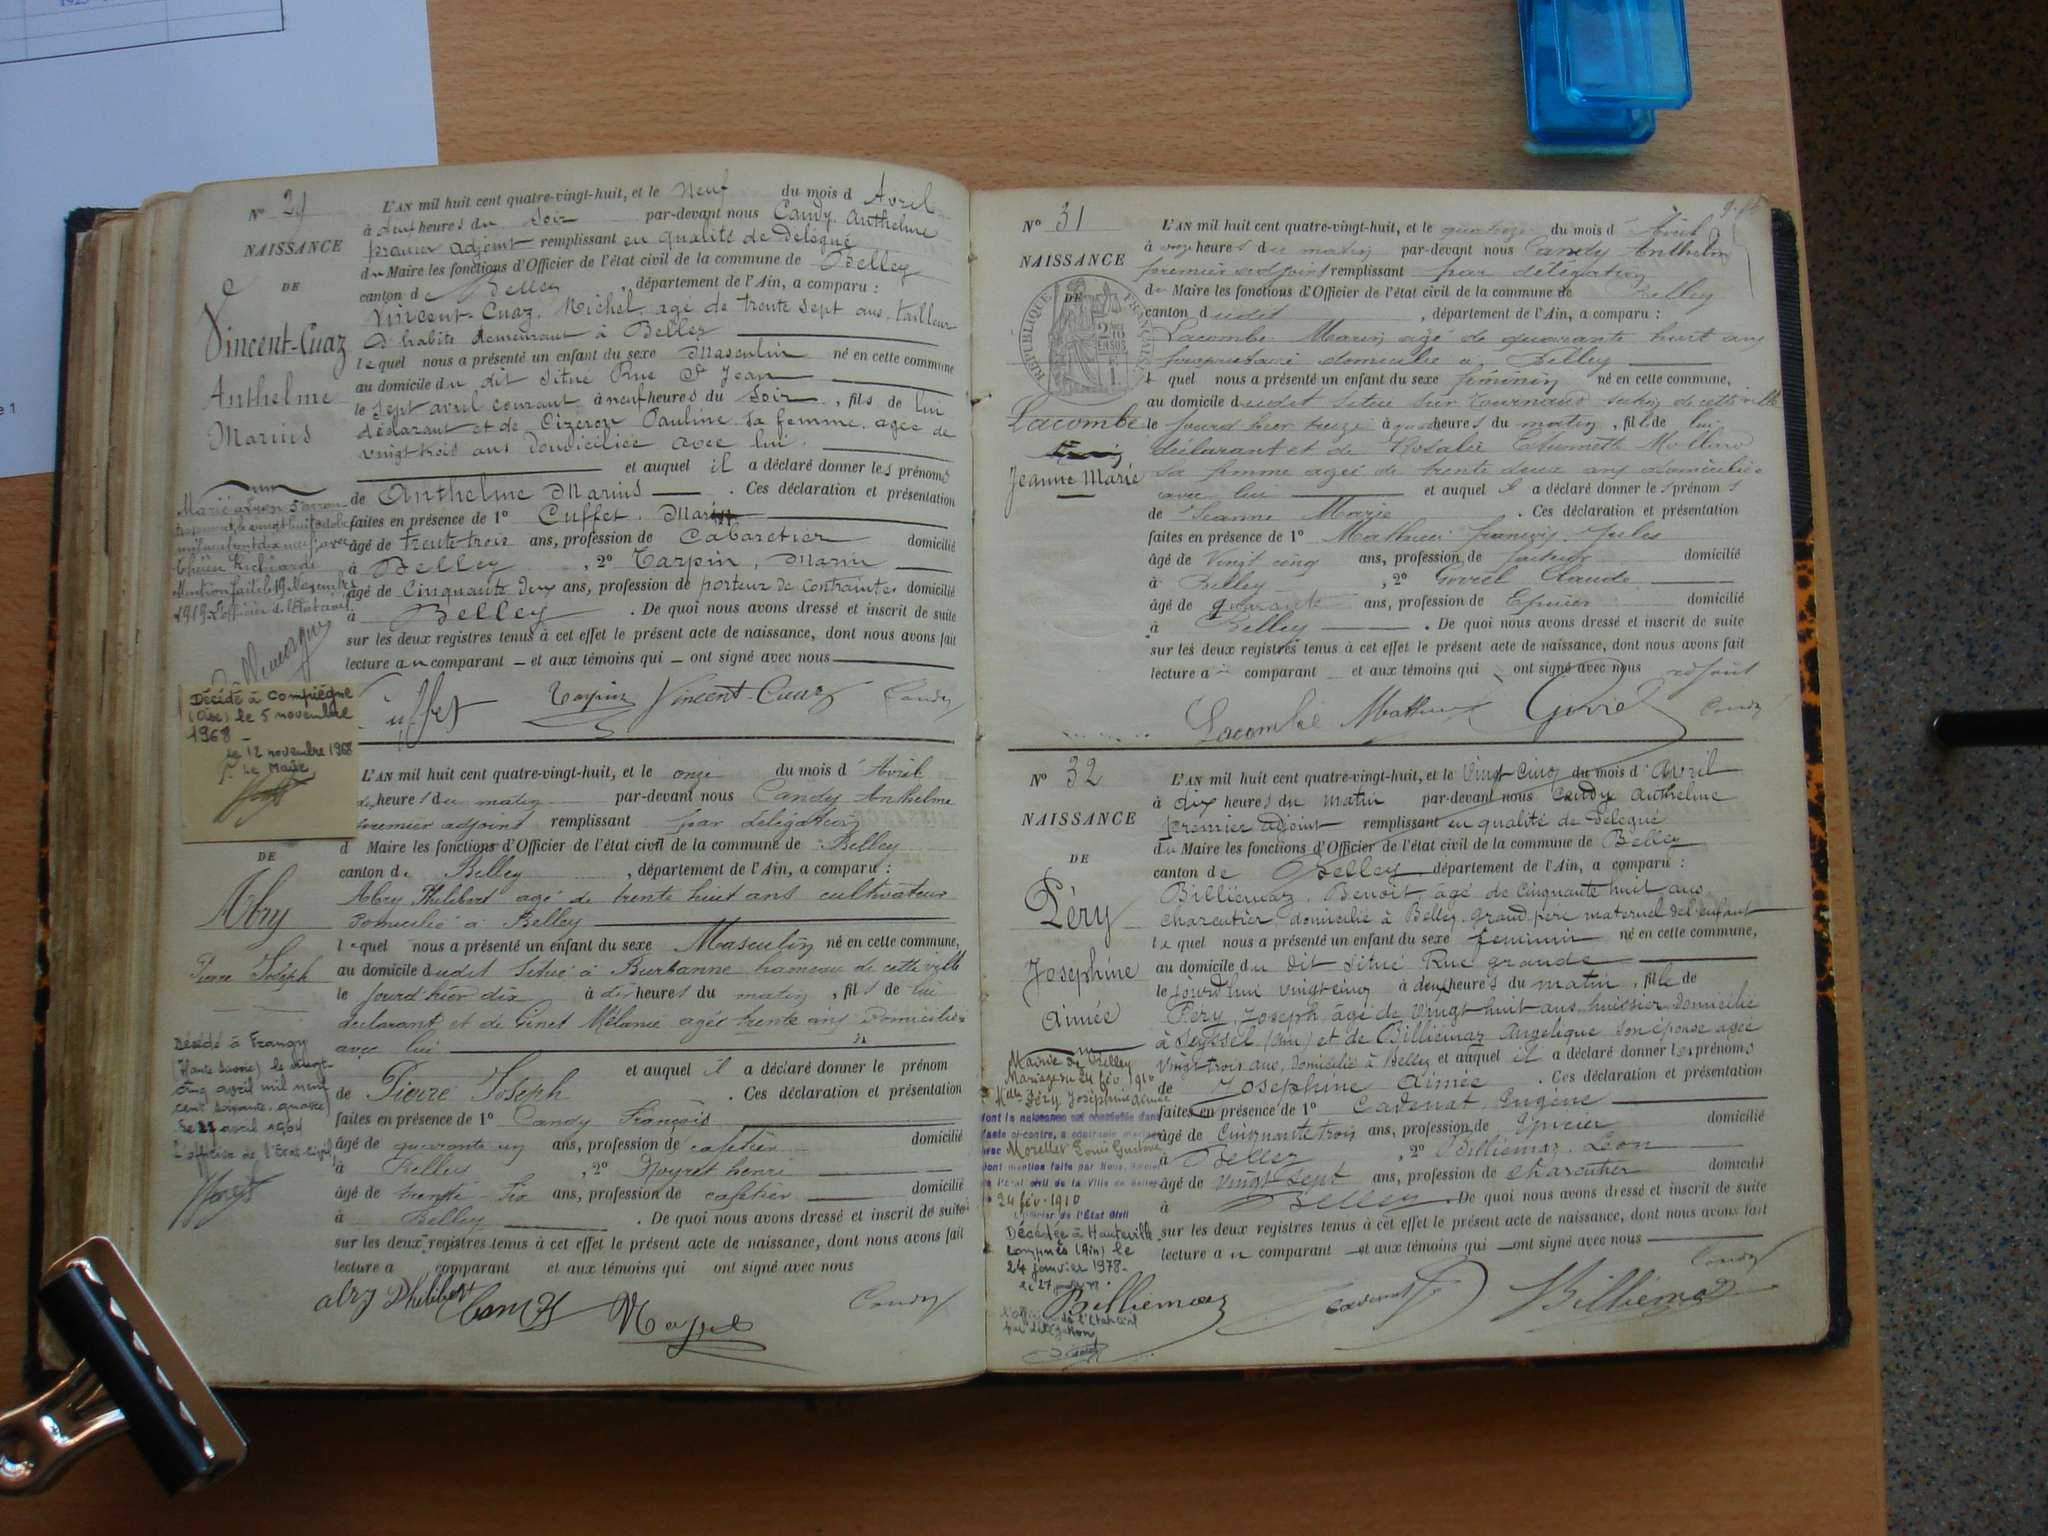 N° 29
NAISSANCE
DE
Vincent-Cuaz
Anthelme
Marius
L'AN mil huit cent quatre-vingt-huit, et le Neuf du mois d Avril
à deux heures du Soir par-devant nous Candy Anthelme
premier adjoint remplissant en qualité de Délégué
du Maire les fonctions d'Officier de l'état civil de la commune de Belley
canton de Belley, département de l'Ain, a comparu :
Vincent-Cuaz, Michel, agé de trente sept ans, tailleur
d'habits demeurant à Belley
lequel nous a présenté un enfant du sexe Masculin né en cette commune
au domicile du dit situé Rue St Jean
le Sept avril courant à neuf heures du Soir, fils de lui
déclarant et de Cizeron Pauline sa femme, agée de
vingt trois ans domiciliée avec lui.
et auquel il a déclaré donner les prénoms
de Anthelme Marius. Ces déclaration et présentation
faites en présence de 1° Cuffet, Marin
âgé de trente trois ans, profession de Cabaretier domicilié
à Belley, 2° Tarpin, Marin
âgé de Cinquante deux ans, profession de porteur de Contraintes domicilié
à Belley. De quoi nous avons dressé et inscrit de suite
sur les deux registres tenus à cet effet le présent acte de naissance, dont nous avons fait
lecture au comparant et aux témoins qui ont signé avec nous
Cuffet Tarpin Vincent-Cuaz Candy
Marié à Lyon
le vingt huit octobre
mil neuf cent dix neuf, avec
Richiardi
Mention faite le 19 Novembre
1919 L'officier de l'Etat civil
Décédé à Compiègne
(Oise) le 5 novembre
1968 -
Le 12 novembre 1968
Pr Le Maire
DE
Abry
Pierre Joseph
L'AN mil huit cent quatre-vingt-huit, et le onze du mois d'Avril
dix heures du matin par-devant nous Candy Anthelme
premier adjoint remplissant par délégation
d Maire les fonctions d'Officier de l'état civil de la commune de Belley
canton de Belley, département de l'Ain, a comparu :
Abry Philibert agé de trente huit ans cultivateur
domicilié à Belley
lequel nous a présenté un enfant du sexe Masculin né en cette commune,
au domicile dudit situé à Burbanne hameau de cette ville
le jourd'hier dix à dix heures du matin, fils de lui
déclarant et de Ginet Mélanie agée trente ans Domiciliée
avec lui
et auquel il a déclaré donner le prénom
de Pierre Joseph. Ces déclaration et présentation
faites en présence de 1° Candy François
âgé de quarante un ans, profession de cafetier domicilié
à Belley, 2° Noyret henri
âgé de trente-six ans, profession de cafetier domicilié
à Belley. De quoi nous avons dressé et inscrit de suite
sur les deux registres tenus à cet effet le présent acte de naissance, dont nous avons fait
lecture a comparant et aux témoins qui ont signé avec nous
abry Philibert Candy Noyret Candy
Décédé à Frangy
(Haute Savoie) le vingt-
cinq avril mil neuf
cent soixante-quatre)
avril 1964
L'officier de l'Etat-Civil,
N° 31
NAISSANCE
DE
RÉPUBLIQUE FRANÇAISE
Lacombe
Jeanne Marie
L'AN mil huit cent quatre-vingt-huit, et le quatorze du mois d'Avril
à onze heures du matin par-devant nous Candy Anthelm
premier adjoint remplissant par délégation
du Maire les fonctions d'Officier de l'état civil de la commune de Belley
canton dudit, département de l'Ain, a comparu :
Lacombe Marin agé de quarante huit ans
propriétaire domicilié à Belley
l quel nous a présenté un enfant du sexe féminin né en cette commune,
au domicile dudit situé sur section de cette ville
le jourd'hier treize à heures du matin, fille de lui
déclarant et de Rosalie
sa femme agée de trente deux ans domiciliée
avec lui et auquel il a déclaré donner les prénoms
de Jeanne Marie. Ces déclaration et présentation
faites en présence de 1° Mathieu françois Jules
âgé de Vingt cinq ans, profession de facteur domicilié
à Belley, 2° Goviel Claude
âgé de quarante ans, profession de Epicier domicilié
à Belley. De quoi nous avons dressé et inscrit de suite
sur les deux registres tenus à cet effet le présent acte de naissance, dont nous avons fait
lecture a comparant et aux témoins qui ont signé avec nous adjoint
Lacombe Mathieu Goviel Candy
N° 32
NAISSANCE
DE
Péry
Joséphine
Aimée
L'AN mil huit cent quatre-vingt-huit, et le Vingt Cinq du mois d'Avril
à dix heures du matin par-devant nous Candy Anthelme
premier adjoint remplissant en qualité de Délégué
du Maire les fonctions d'Officier de l'état civil de la commune de Belley
canton de Belley, département de l'Ain, a comparu :
Billiémaz, Benoit, âgé de Cinquante huit ans,
Charcutier domicilié à Belley, grand père maternel de l'enfant
lequel nous a présenté un enfant du sexe feminin né en cette commune,
au domicile du dit situé Rue grande
le jourd'hui vingt cinq à deux heures du matin, fille de
Péry Joseph âgé de vingt huit ans, huissier, domicilié
à Seyssel (Ain) et de Billiémaz Angelique son épouse agée
vingt trois ans, domiciliée à Belley et auquel il a déclaré donner les prénoms
de Joséphine Aimée. Ces déclaration et présentation
faites en présence de 1° Cadenat, Eugène domicilié
âgé de Cinquante trois ans, profession de Epicier
à Belley, 2° Billiemaz, Léon
âgé de vingt Sept ans, profession de charcutier domicilié
à Belley. De quoi nous avons dressé et inscrit de suite
sur les deux registres tenus à cet effet le présent acte de naissance, dont nous avons fait
lecture au comparant et aux témoins qui ont signé avec nous
Candy
Billiemaz Cadenat Billiémaz
Mairie de Belley
Mariage du 24 fév. 1910
Mlle Péry Joséphine Aimée
dont la naissance est constatée dans
l'acte ci-contre, a contracté mariage
avec Morellet Louis Gustave
Dont mention faite par Nous, Officier
de l'Etat civil de la Ville de Belley
24 fév. 1910
L'Officier de l'Etat Civil
Décédée à Hauteville-
Lompnès (Ain) le
24 janvier 1978-
de l'Etat Civil
par délégation